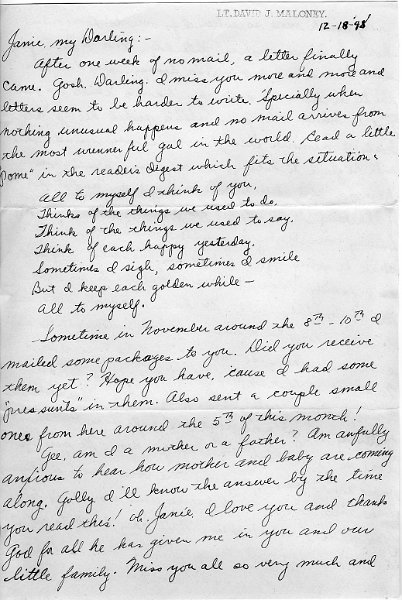 LT. DAVID J. MALONEY.
12-18-43
Janie, my Darling:-
After one week of no mail, a letter finally
came. Gosh, Darling. I miss you more and more and
letters seem to be harder to write. 'Specially when
nothing unusual happens and no mail arrives from
the most wunnerful gal in the world. Read a little
"pome" in the readers digest which fits the situation.
All to myself I think of you,
Think of the things we used to do.
Think of the things we used to say.
Think of each happy yesterday.
Sometimes I sigh, sometimes I smile
But I keep each golden while—
All to myself.
Sometime in November around the 8th - 10th I
mailed some packages to you. Did you receive
them yet? Hope you have, 'cause I had some
"pressunts" in them. Also sent a couple small
ones from here around the 5th of this month!
Gee, am I a mother or a father? Am awfully
anxious to hear how mother and baby are coming
along. Golly I'll know the answer by the time
you read this! Oh, Janie, I love you and thank
God for all he has given me in you and our
little family. Miss you all so very much and